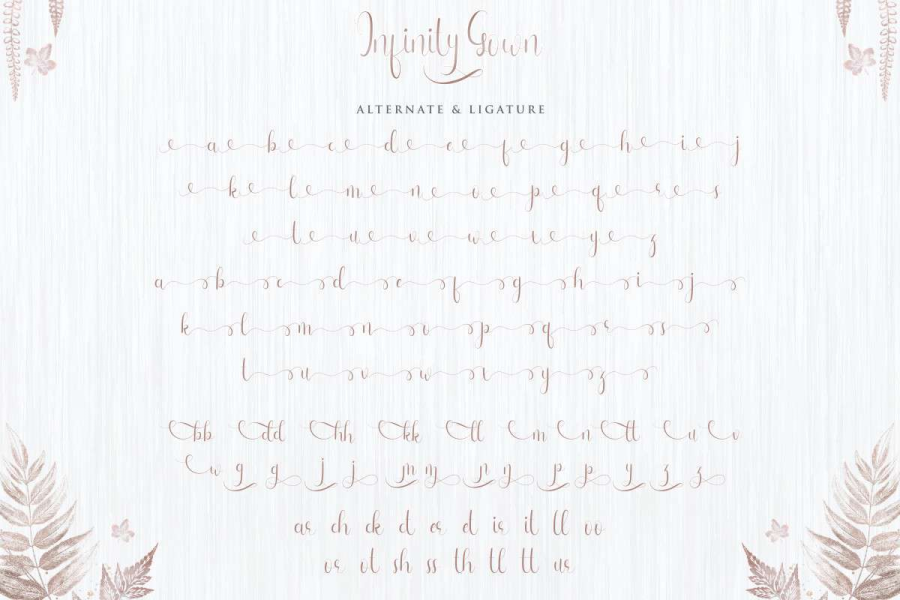 Infinity Gown
ALTERNATE & LIGATURE
a b c d e f g h i j
k l m n o p q r s
t u v w x y z
a b c d e f g h i j
k l m n o p q r s
t u v w x y z
bb dd hh kk ll m n tt u v
w g g j j m m n n p p y z z
as ch ck ct es et is it ll oo
os ot sh ss th tl tt us